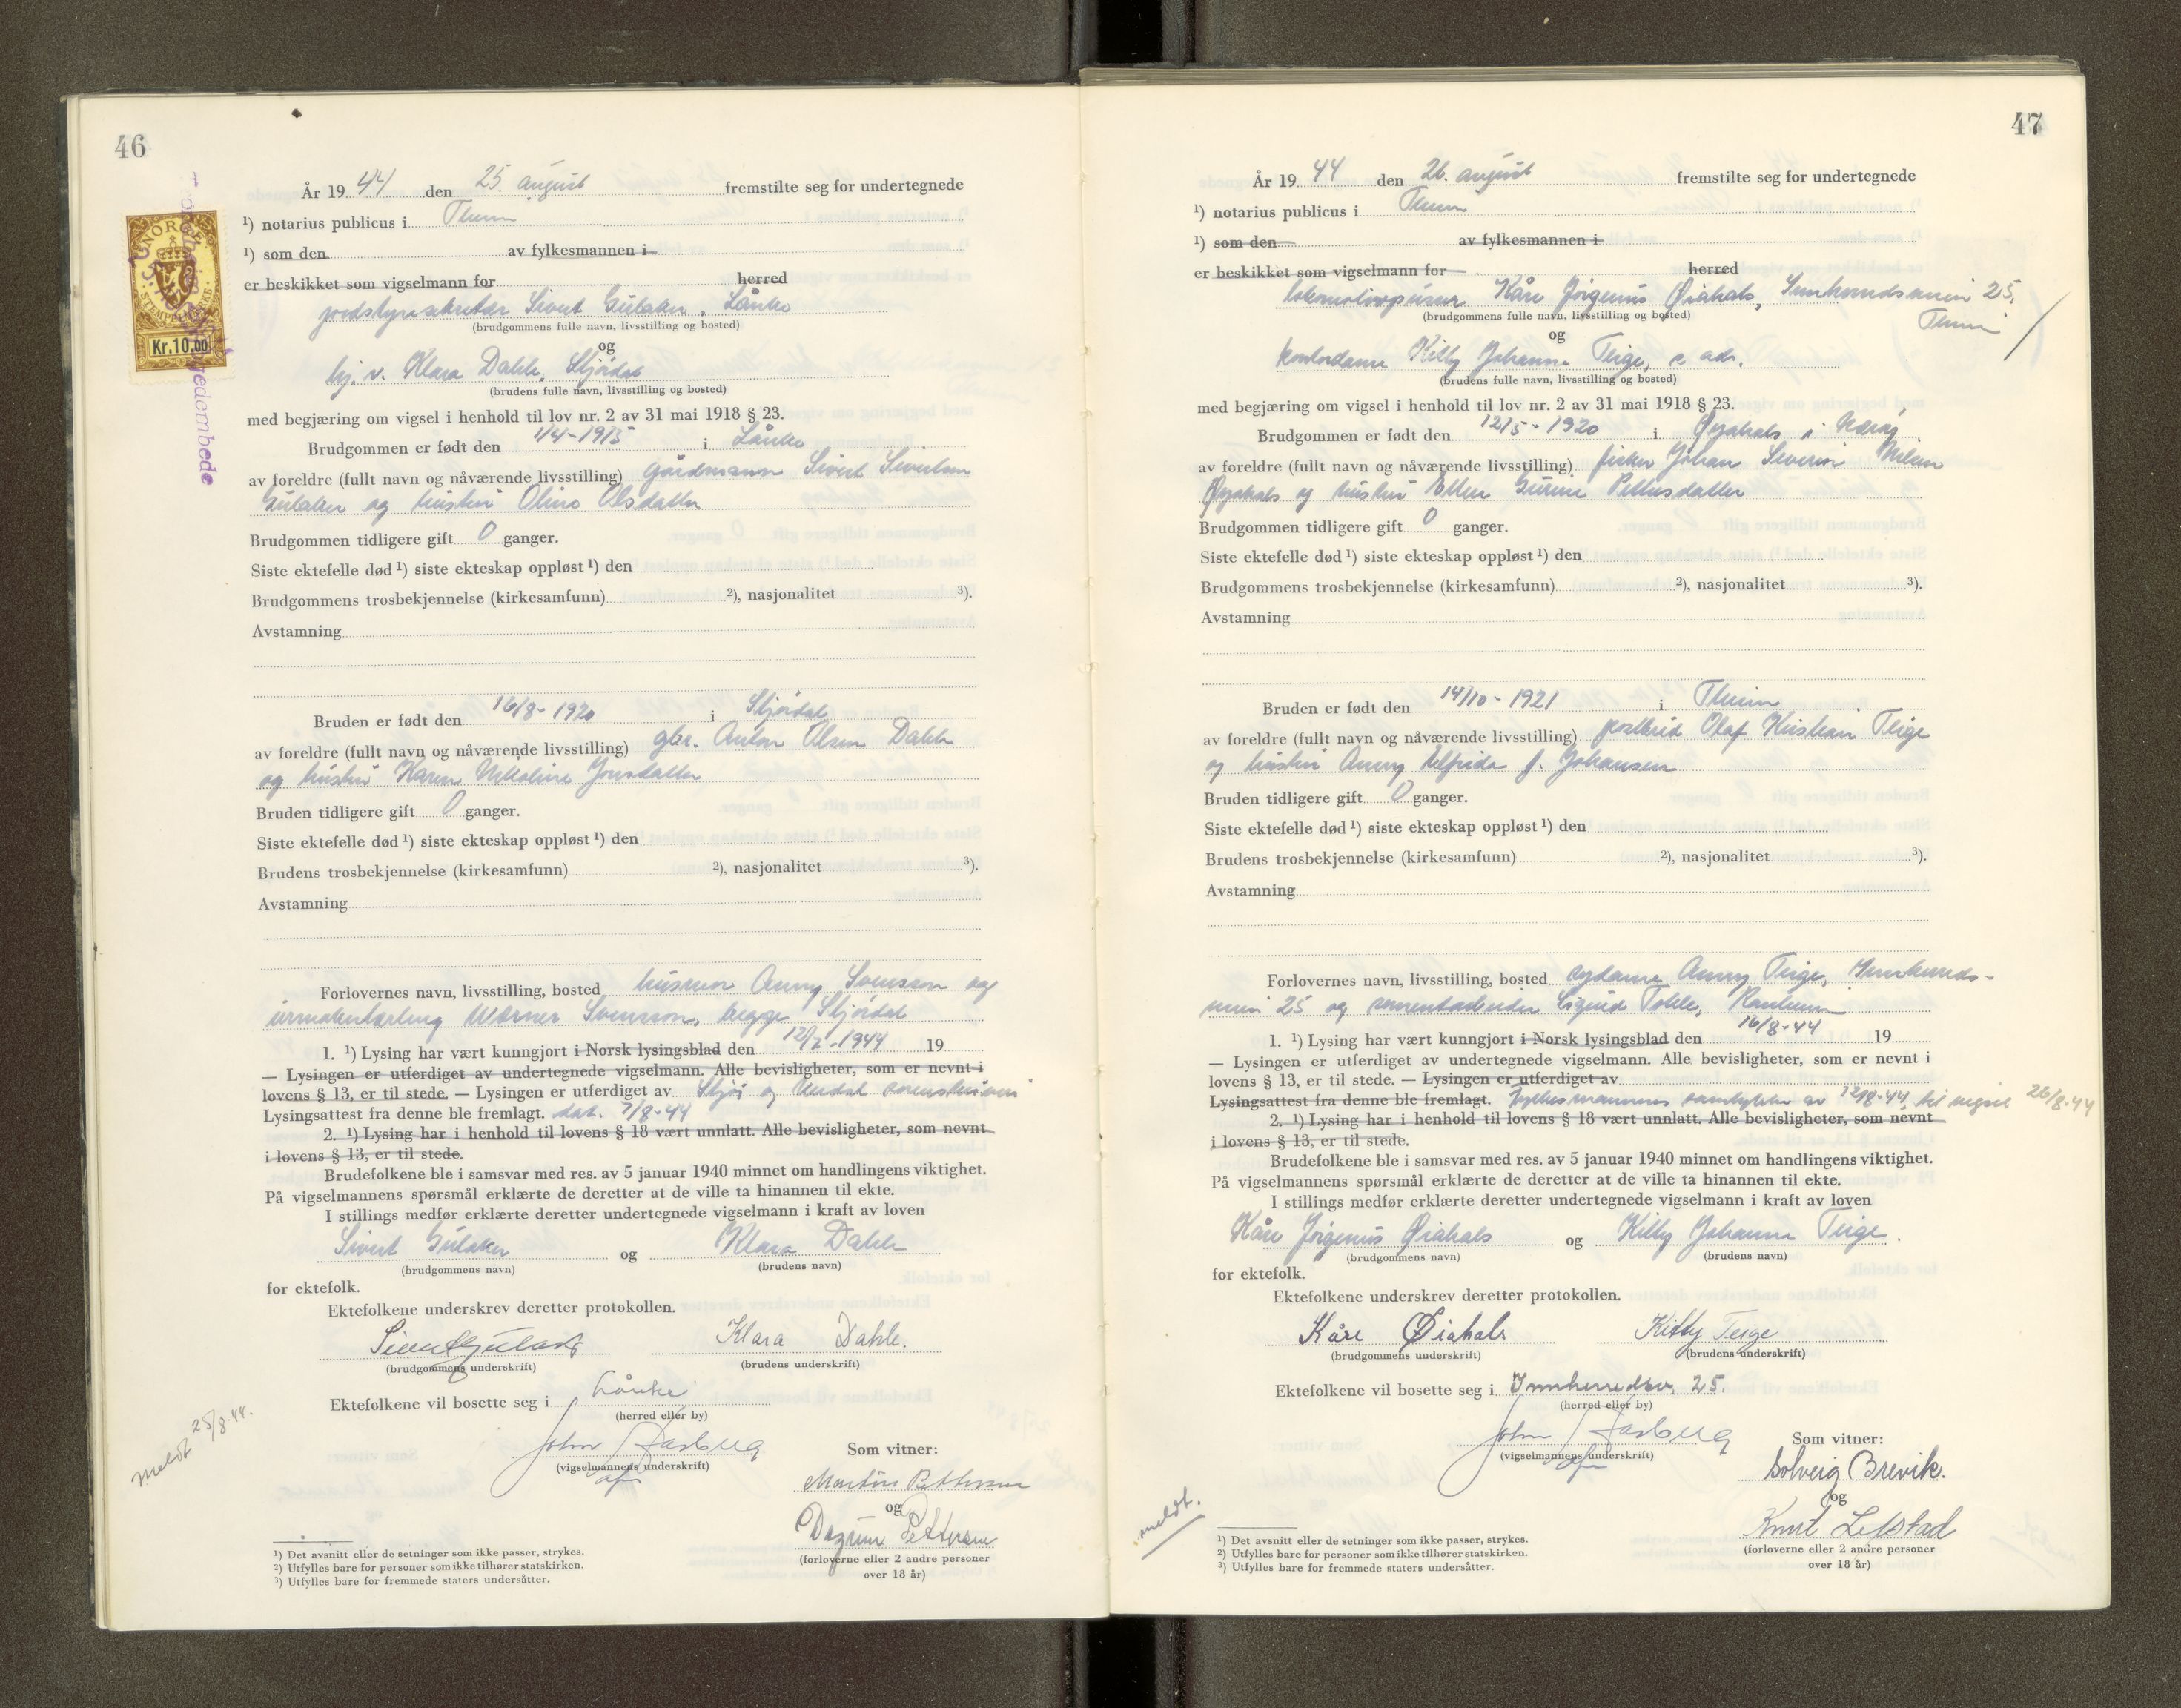 46
År 19 44 den 25. august fremstilte seg for undertegnede
¹) notarius publicus i Thm
¹) som den av fylkesmannen i
er beskikket som vigselmann for herred
jordstyresekretær Sivert Gulaker, Lånke
(brudgommens fulle navn, livsstilling og bosted)
og
hj. v. Klara Dahle, Stjørdal
(brudens fulle navn, livsstilling og bosted)
med begjæring om vigsel i henhold til lov nr. 2 av 31 mai 1918 § 23.
Brudgommen er født den 1/4-1915 i Lånke
av foreldre (fullt navn og nåværende livsstilling) gårdmann Sivert Sivertsen
Gulaker og hustru Oline Olsdatter
Brudgommen tidligere gift 0 ganger.
Siste ektefelle død ¹) siste ekteskap oppløst ¹) den
Brudgommens trosbekjennelse (kirkesamfunn) ²), nasjonalitet ³).
Avstamning
Bruden er født den 16/8-1920 i Stjørdal
av foreldre (fullt navn og nåværende livsstilling) gbr. Anton Olsen Dahle
og hustru Karen Nikoline Jonsdatter
Bruden tidligere gift 0 ganger.
Siste ektefelle død ¹) siste ekteskap oppløst ¹) den
Brudens trosbekjennelse (kirkesamfunn) ²), nasjonalitet ³).
Avstamning
Forlovernes navn, livsstilling, bosted husmor Anny Svensson og
urmakerlærling Werner Svensson, begge Stjørdal
1. ¹) Lysing har vært kunngjort i Norsk lysingsblad den 12/7-1944 19
— Lysingen er utferdiget av undertegnede vigselmann. Alle bevisligheter, som er nevnt i
lovens § 13, er til stede. — Lysingen er utferdiget av Stjør og Verdal sorenskriveri
Lysingsattest fra denne ble fremlagt. dat. 7/8-44
2. ¹) Lysing har i henhold til lovens § 18 vært unnlatt. Alle bevisligheter, som nevnt
i lovens § 13, er til stede.
Brudefolkene ble i samsvar med res. av 5 januar 1940 minnet om handlingens viktighet.
På vigselmannens spørsmål erklærte de deretter at de ville ta hinannen til ekte.
I stillings medfør erklærte deretter undertegnede vigselmann i kraft av loven
Sivert Gulaker og Klara Dahle
(brudgommens navn) (brudens navn)
for ektefolk.
Ektefolkene underskrev deretter protokollen.
Sivert Gulaker Klara Dahle.
(brudgommens underskrift) (brudens underskrift)
Ektefolkene vil bosette seg i Lånke
(herred eller by)
meldt 25/8-44.
John Aasberg
(vigselmannens underskrift)
Som vitner:
Martin Pettersen
og
Dagrun Pettersen
(forloverne eller 2 andre personer
over 18 år)
¹) Det avsnitt eller de setninger som ikke passer, strykes.
²) Utfylles bare for personer som ikke tilhører statskirken.
³) Utfylles bare for fremmede staters undersåtter.
NORGE
STEMPELMERKE
Kr.10.00
47
År 19 44 den 26. august fremstilte seg for undertegnede
¹) notarius publicus i Thm
¹) som den av fylkesmannen i
er beskikket som vigselmann for herred
lokomotivpusser Kåre Jørgenus Øiahals, Innherredsveien 25,
Thm
(brudgommens fulle navn, livsstilling og bosted)
og
kontordame Kitty Johanne Teige, s. adr.
(brudens fulle navn, livsstilling og bosted)
med begjæring om vigsel i henhold til lov nr. 2 av 31 mai 1918 § 23.
Brudgommen er født den 12/5-1920 i Øyahals i Nærøy
av foreldre (fullt navn og nåværende livsstilling) fisker Johan Severin Nilsen
Øyahals og hustru Ellen Gurine Pettersdatter
Brudgommen tidligere gift 0 ganger.
Siste ektefelle død ¹) siste ekteskap oppløst ¹) den
Brudgommens trosbekjennelse (kirkesamfunn) ²), nasjonalitet ³).
Avstamning
Bruden er født den 14/10-1921 i Thm
av foreldre (fullt navn og nåværende livsstilling) postbud Olaf Kristian Teige
og hustru Anny Alfrida f. Johansen
Bruden tidligere gift 0 ganger.
Siste ektefelle død ¹) siste ekteskap oppløst ¹) den
Brudens trosbekjennelse (kirkesamfunn) ²), nasjonalitet ³).
Avstamning
Forlovernes navn, livsstilling, bosted sydame Anny Teige, Innherreds-
veien 25 og sementarbeider Sigurd Tolle, Ranheim
1. ¹) Lysing har vært kunngjort i Norsk lysingsblad den 16/8-44 19
— Lysingen er utferdiget av undertegnede vigselmann. Alle bevisligheter, som er nevnt i
lovens § 13, er til stede. — Lysingen er utferdiget av
Lysingsattest fra denne ble fremlagt. Fylkesmannens samtykke av 12/8-44, til vigsel 26/8-44
2. ¹) Lysing har i henhold til lovens § 18 vært unnlatt. Alle bevisligheter, som nevnt
i lovens § 13, er til stede.
Brudefolkene ble i samsvar med res. av 5 januar 1940 minnet om handlingens viktighet.
På vigselmannens spørsmål erklærte de deretter at de ville ta hinannen til ekte.
I stillings medfør erklærte deretter undertegnede vigselmann i kraft av loven
Kåre Jørgenus Øiahals og Kitty Johanne Teige.
(brudgommens navn) (brudens navn)
for ektefolk.
Ektefolkene underskrev deretter protokollen.
Kåre Øiahals Kitty Teige
(brudgommens underskrift) (brudens underskrift)
Ektefolkene vil bosette seg i Innherredsv. 25.
(herred eller by)
meldt.
John Aasberg
(vigselmannens underskrift)
Som vitner:
Solveig Brevik.
og
Knut Lefstad
(forloverne eller 2 andre personer
over 18 år)
¹) Det avsnitt eller de setninger som ikke passer, strykes.
²) Utfylles bare for personer som ikke tilhører statskirken.
³) Utfylles bare for fremmede staters undersåtter.